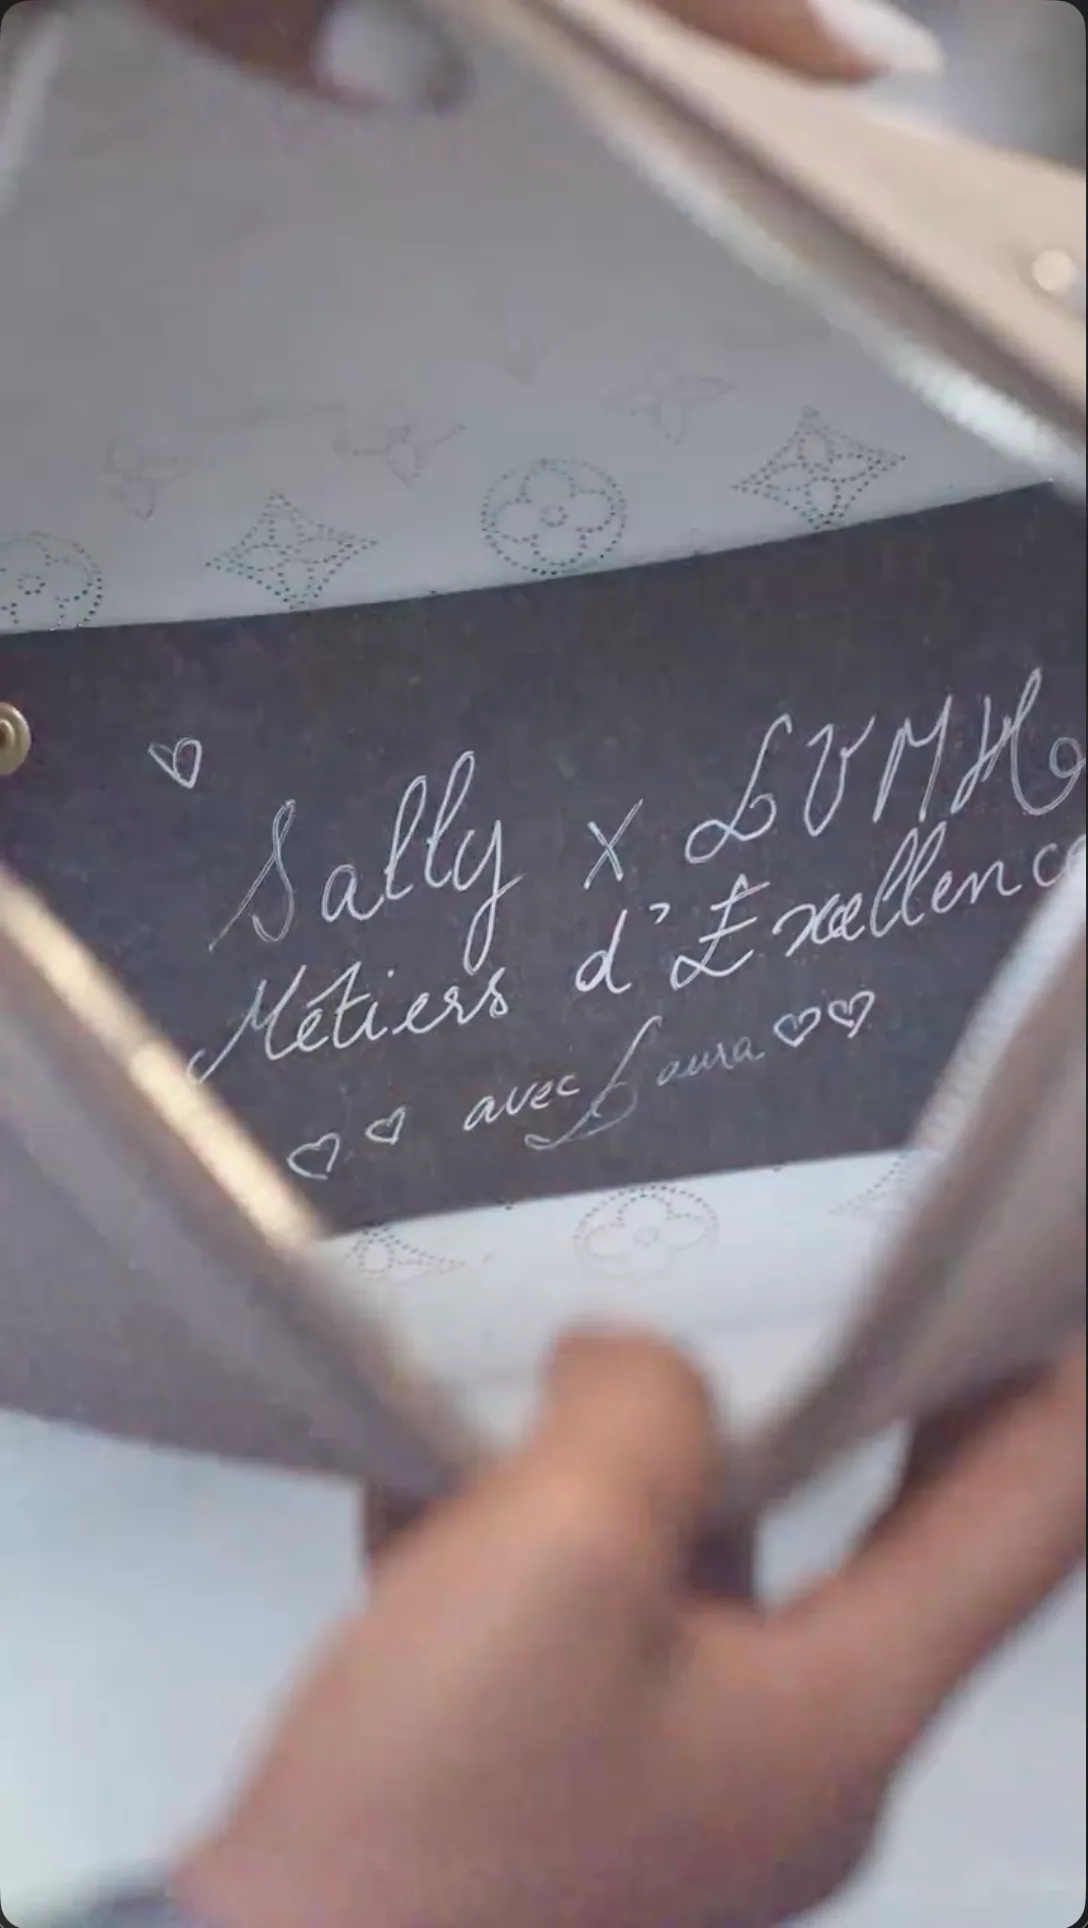 ♡ Sally x LVMH
Métiers d'Exellence
♡ ♡ avec Laura ♡♡